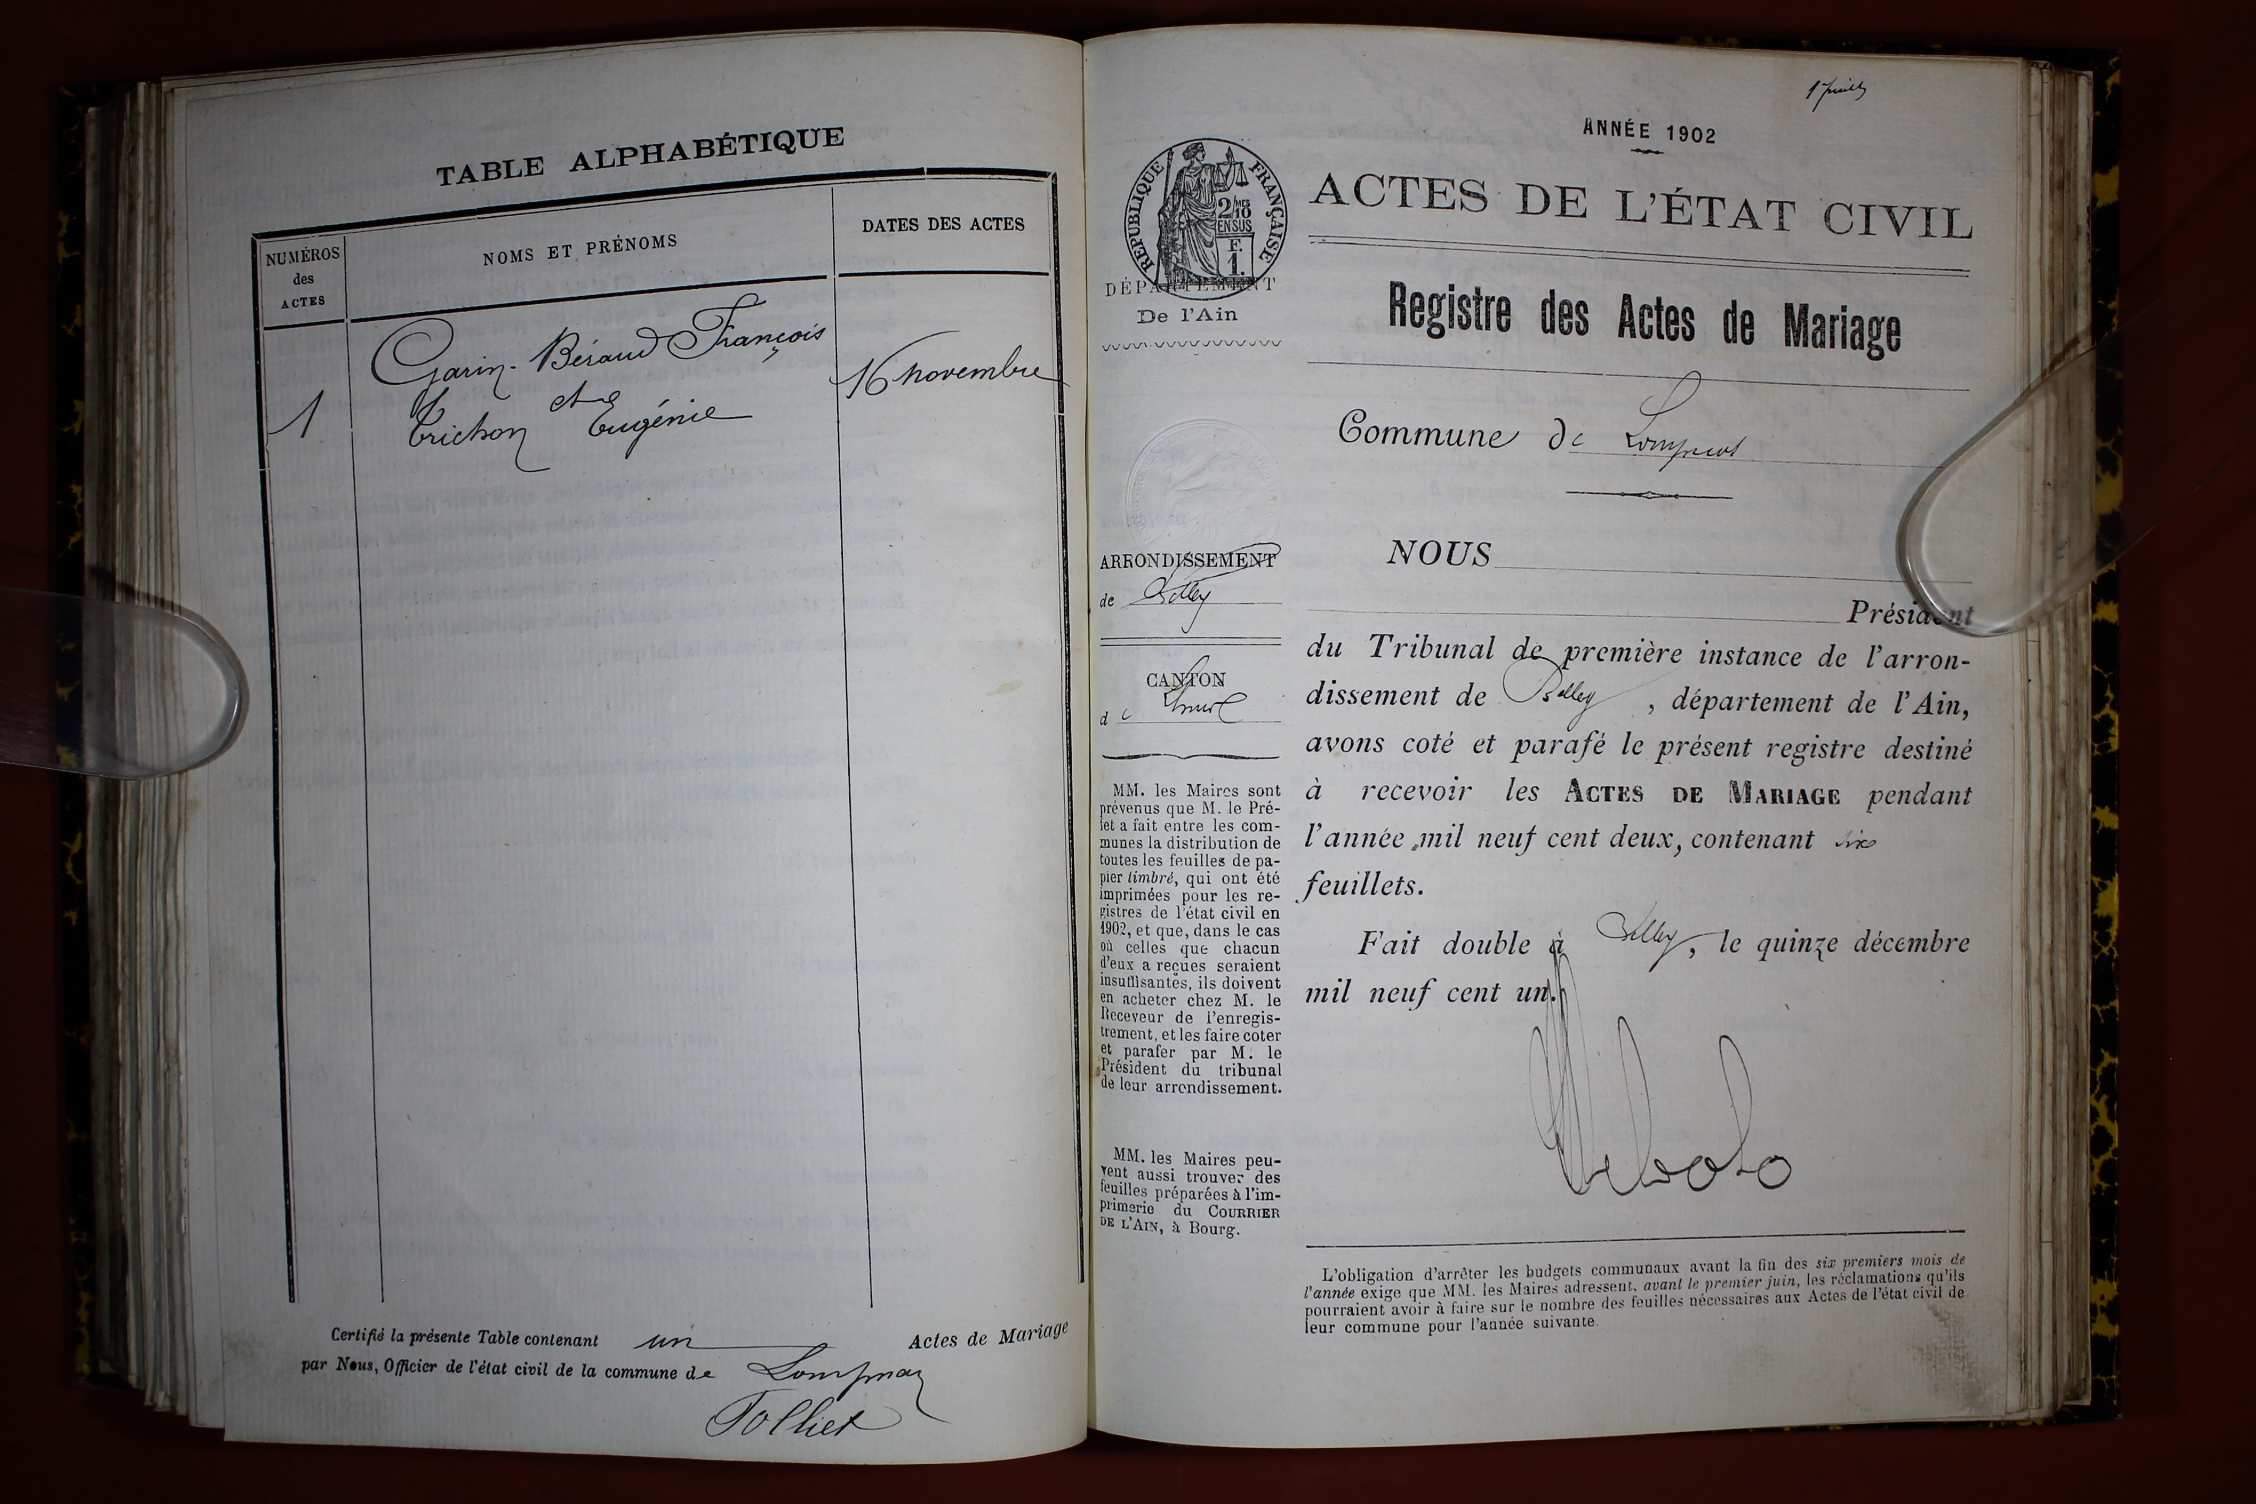 TABLE ALPHABÉTIQUE
NUMÉROS
des
ACTES
NOMS ET PRÉNOMS
DATES DES ACTES
1
Garin-Béraud François
et
Trichon Eugénie
16 novembre
Certifié la présente Table contenant un Actes de Mariage
par Nous, Officier de l'état civil de la commune de Lompnaz
Tolliet
ANNÉE 1902
RÉPUBLIQUE FRANÇAISE
2/10
EN SUS
F.
1.
DÉPARTEMENT
De l'Ain
ARRONDISSEMENT
de Belley
CANTON
de
MM. les Maires sont
prévenus que M. le Pré-
fet a fait entre les com-
munes la distribution de
toutes les feuilles de pa-
pier timbré, qui ont été
imprimées pour les re-
gistres de l'état civil en
1902, et que, dans le cas
où celles que chacun
d'eux a reçues seraient
insuffisantes, ils doivent
en acheter chez M. le
Receveur de l'enregis-
trement, et les faire coter
et parafer par M. le
Président du tribunal
de leur arrondissement.
MM. les Maires peu-
vent aussi trouver des
feuilles préparées à l'im-
primerie du COURRIER
DE L'AIN, à Bourg.
ACTES DE L'ÉTAT CIVIL
Registre des Actes de Mariage
Commune de
NOUS
Président
du Tribunal de première instance de l'arron-
dissement de Belley, département de l'Ain,
avons coté et parafé le présent registre destiné
à recevoir les ACTES DE MARIAGE pendant
l'année mil neuf cent deux, contenant six
feuillets.
Fait double à Belley, le quinze décembre
mil neuf cent un.
L'obligation d'arrêter les budgets communaux avant la fin des six premiers mois de
l'année exige que MM. les Maires adressent, avant le premier juin, les réclamations qu'ils
pourraient avoir à faire sur le nombre des feuilles nécessaires aux Actes de l'état civil de
leur commune pour l'année suivante.